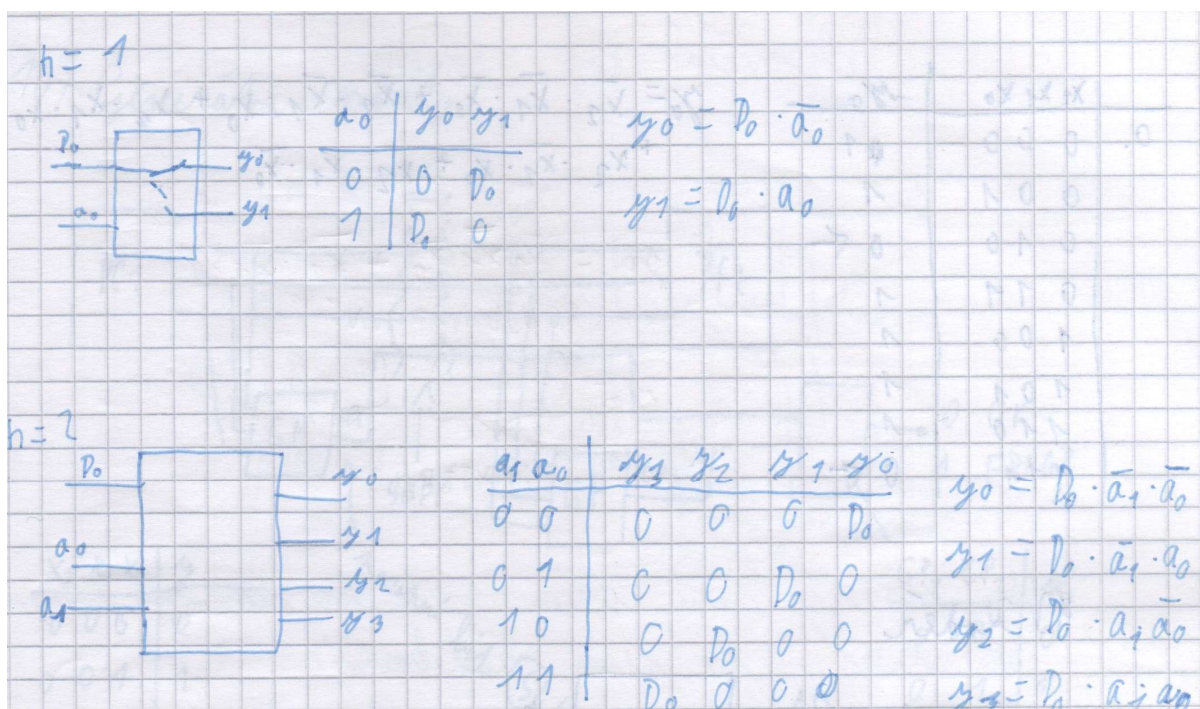 n = 1
D₀
a₀
y₀
y₁
a₀ | y₀ y₁
0 | 0 D₀
1 | D₀ 0
y₀ = D₀ · ā₀
y₁ = D₀ · a₀
n = 2
D₀
a₀
a₁
y₀
y₁
y₂
y₃
a₁ a₀ | y₃ y₂ y₁ y₀
0 0 | 0 0 0 D₀
0 1 | 0 0 D₀ 0
1 0 | 0 D₀ 0 0
1 1 | D₀ 0 0 0
y₀ = D₀ · ā₁ · ā₀
y₁ = D₀ · ā₁ · a₀
y₂ = D₀ · a₁ · ā₀
y₃ = D₀ · a₁ · a₀